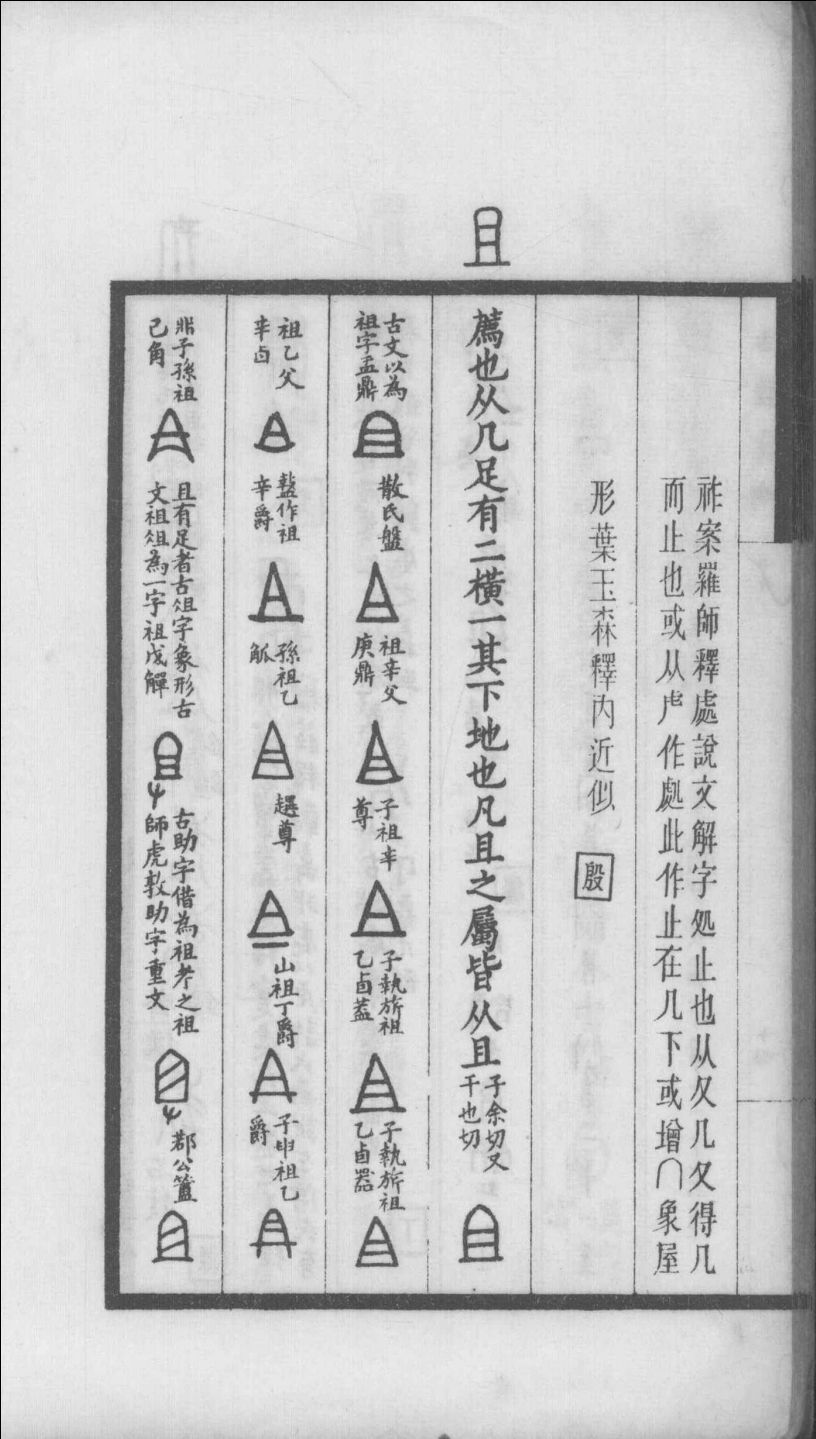 且
祚案羅師釋處說文解字処止也从夂几夂得几
而止也或从虍作處此作止在几下或增∩象屋
形葉玉森釋内近似
殷
薦也从几足有二橫一其下地也凡且之屬皆从且
子余切又
千也切
古文以為
祖字盂鼎
散氏盤
祖辛父
庚鼎
子祖辛
尊
子執旂祖
乙卣蓋
子執旂祖
乙卣器
祖乙父
辛卣
盤作祖
辛爵
孫祖乙
觚
趩尊
山祖丁爵
子申祖乙
爵
鼎子孫祖
己角
且有足者古俎字象形古
文祖俎為一字祖戊觶
古助字借為祖考之祖
師虎敦助字重文
郡公簠